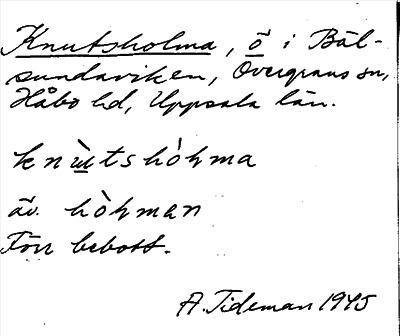 Knutsholma, ö i Bål-
sundaviken, Övergrans sn,
Håbo hd, Uppsala län.
knùtshòḷma
äv. hòḷman
Förr bebott.
A. Tideman 1945